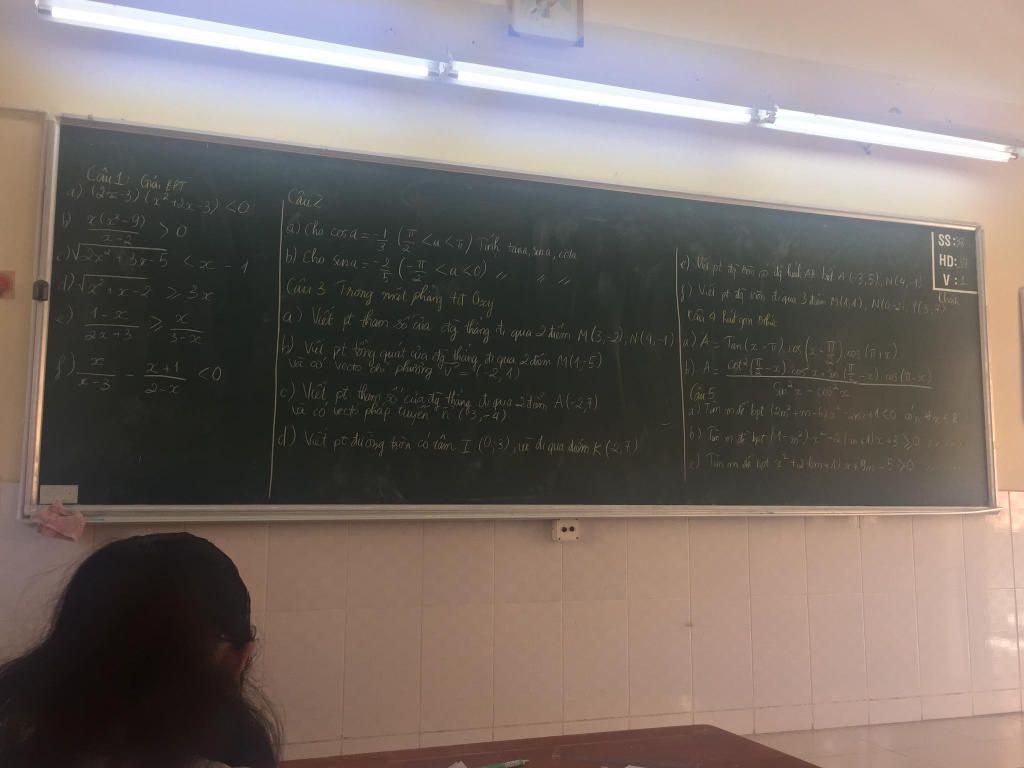 Câu 1: Giải BPT
a) (2x-3)(x²+3x-3) < 0
b) x(x²-9) / x-2 > 0
c) √-2x²+3x-5 < x - 1
d) √x²+x-2 ≥ 3x
e) 1-x / 2x+3 ≥ x / 3-x
f) x / x-3 - x+1 / 2-x < 0
Câu 2
a) Cho cos a = -1/3 (π/2 < a < π) Tính tan a, sin a, cot a
b) Cho sin a = -2/5 (-π/2 < a < 0) " " "
Câu 3 Trong mặt phẳng tđ Oxy
a) Viết pt tham số của đg thẳng đi qua 2 điểm M(3,-2), N(4,-1)
b) Viết pt tổng quát của đg thẳng đi qua 2 điểm M(1,-5)
và có vectơ chỉ phương u = (-2,1)
c) Viết pt tham số của đg thẳng đi qua 2 điểm A(-2,7)
và có vectơ pháp tuyến n (3,-4)
d) Viết pt đường tròn có tâm I (0,3), và đi qua điểm K (-2,7)
SS:
HD:
V:
e) Viết pt đg tròn có đg kính AB biết A(-3,5),
f) Viết pt đg tròn đi qua 3 điểm M(1,1), N(0,-2),
Câu 4 Rút gọn Bthức
a) A = Tan(x-π).cos(x-π/2).cos(π+x)
b) A =
sin²x - cos²x
Câu 5
a) Tìm m để bpt
b) Tìm m để bpt (1-m²)x² - 2(m+1)x + 3 ≥ 0
c) Tìm m để bpt